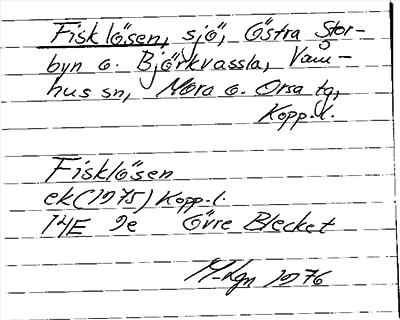 Fisklösen, sjö, Östra Stor-
byn o. Björkvassla, Våm-
hus sn, Mora o. Orsa tg,
Kopp. l.
Fisklösen
ek (1975) Kopp. l.
14E 9e Övre Blecket
M-Lgn 1976